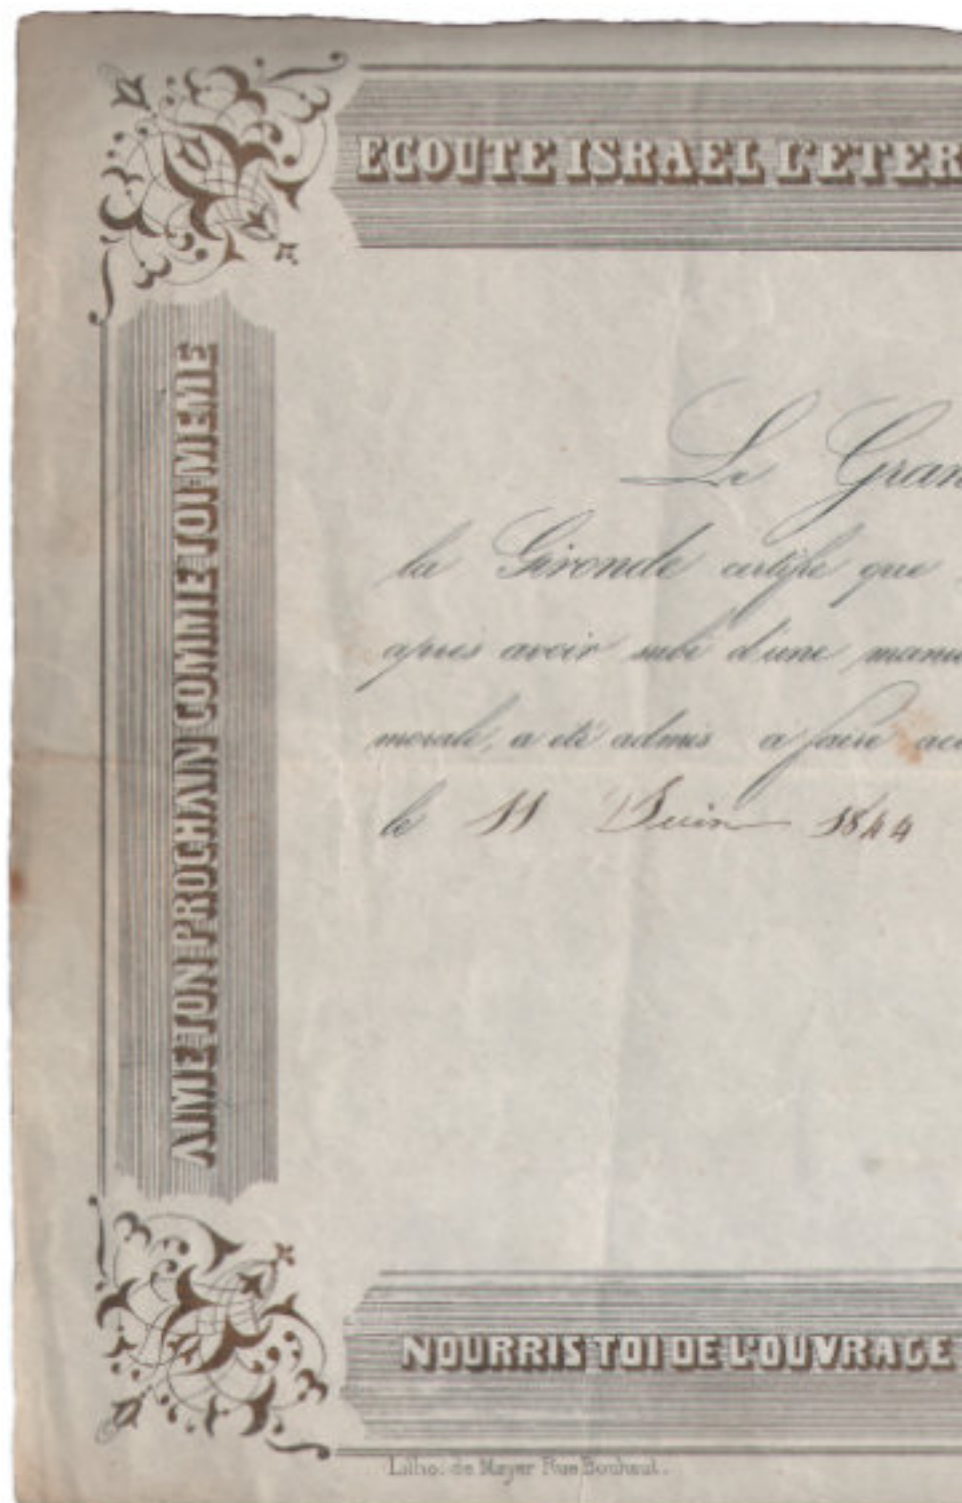 ECOUTE ISRAEL L'ETER
AIME TON PROCHAIN COMME TOI-MEME
Le Gran
la Gironde certifie que
après avoir subi d'une mani
morale, a été admis a faire acc
le 11 Juin 1844
NOURRIS TOI DE L'OUVRAGE
Litho: de Mayer Rue Bouhaut.